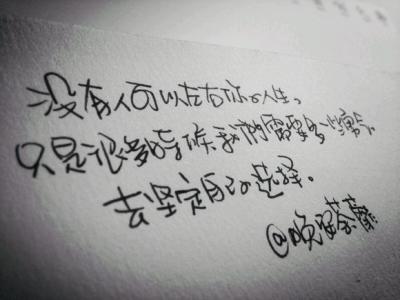 没有人可以左右你的人生。
只是很多时候我们需要多一些勇气
去坚定自己的选择。
@晚溪荼蘼